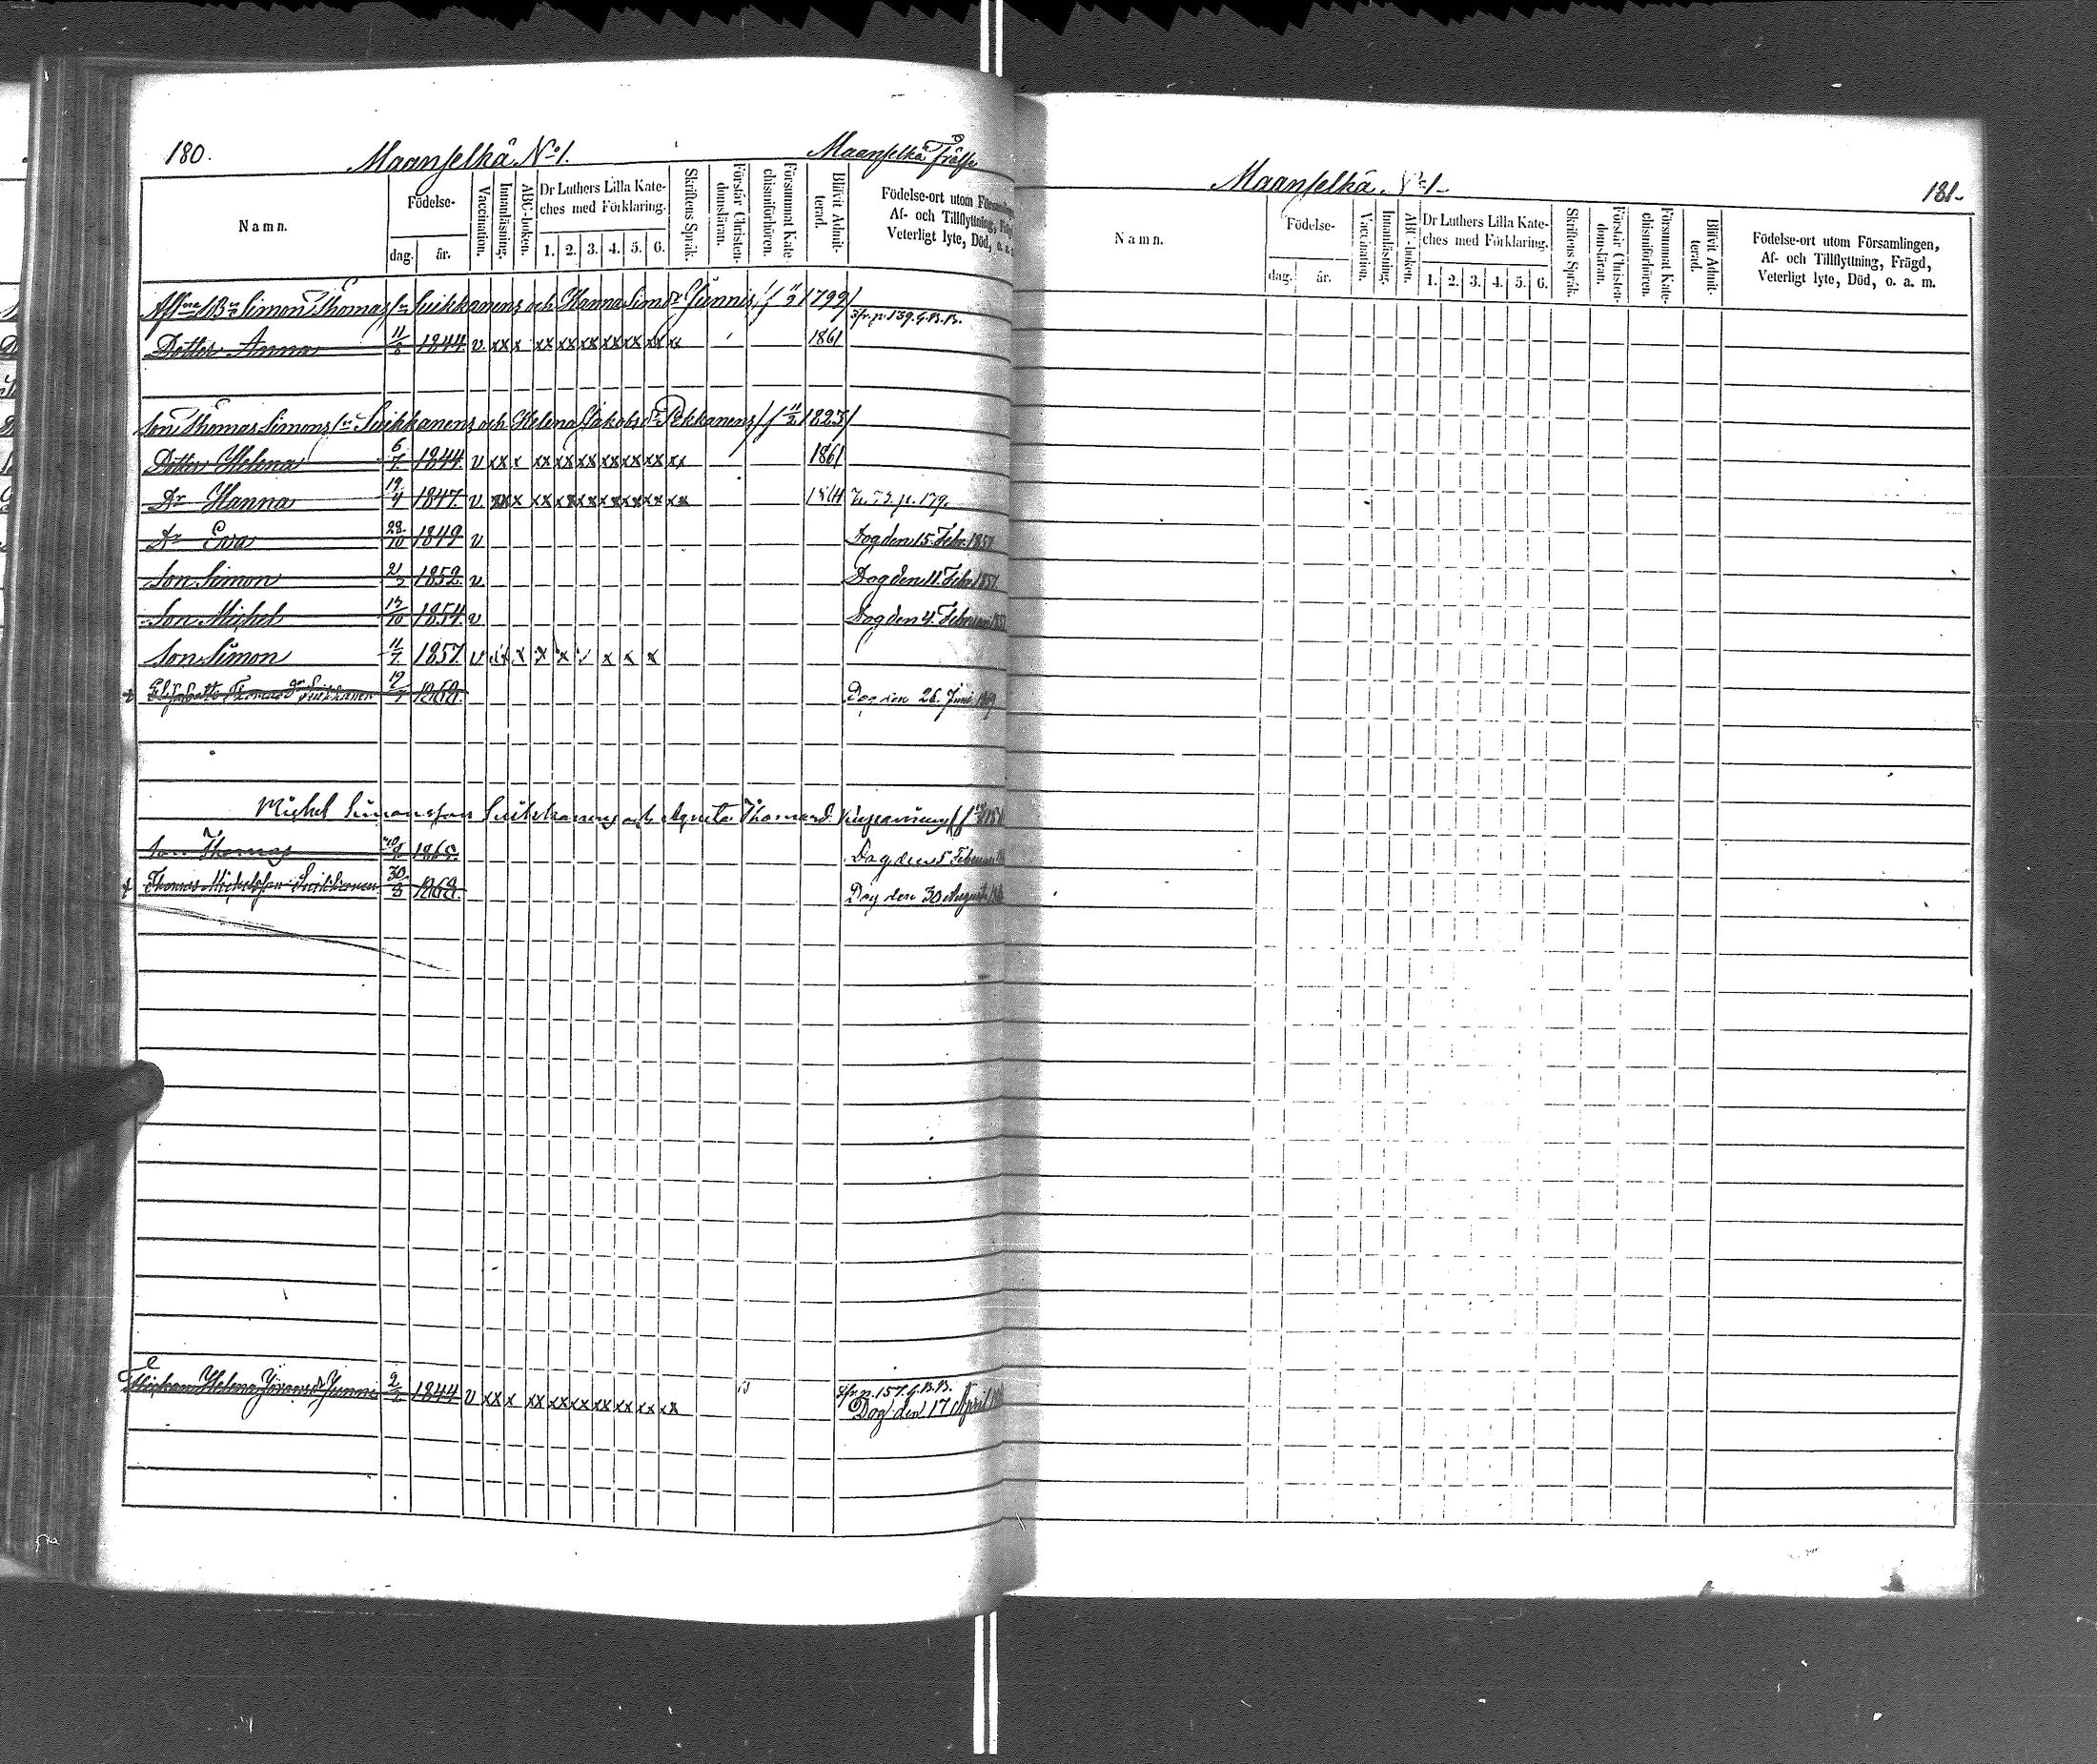 180.
Maanselkä No 1.
Maanselkä Frälse
Namn.
Födelse-
dag.
år.
Vaccination.
Innanläsning.
ABC-boken.
Dr Luthers Lilla Kate-
ches med Förklaring.
1. 2. 3. 4. 5. 6.
Skriftens Språk.
Förstår Christen-
domsläran.
Försummat Kate-
chismiförhören.
Blifvit Admit-
terad.
Födelse-ort utom Församlingen,
Af- och Tillflyttning, Frägd,
Veterligt lyte, Död, o. a. m.
Simon Thomass Suikkanens och Hanna Sim dr Junnis 1799
p. 139. G.B.B.
Dotter Anna 11/8 1844 v xx x xx xx xx xx xx xx xx 1861
Son Thomas Simonss Suikkanens och Helena Jakobs dr Pekkanens 11/2 1823
Dotter Helena 6/7 1844 v xx x xx xx xx xx xx xx xx 1861
Dr Hanna 19/4 1847. v. xx x xx xx xx xx xx xx xx p. 179.
Dr Ewa 28/10 1849 v Dog den 15 Febr. 1857
Son Simon 1852 v Dog den 11 Febr 1857
Son Michel 13/10 1854 v Dog den 4 Februari
Son Simon 11/7 1857 v x x x x x x
Elisabetha Thomas dr Suikkanen 1868. Dog den 26. Juni
Michel Simonsson Suikkanens och Agneta Thomasd.
Son Thomas 1865. Dog den 5 Februari
Thomas Michelsson Suikkanen 30/3 1868. Dog den 30 Augusti
Helena Jöransdr Junni 2/2 1844 v xx x xx xx xx xx xx xx xx
p. 157. G.B.B.
Dog den 17 April
Maanselkä No 1
181.
Namn.
Födelse-
dag.
år.
Vaccination.
Innanläsning.
ABC-boken.
Dr Luthers Lilla Kate-
ches med Förklaring.
1. 2. 3. 4. 5. 6.
Skriftens Språk.
Förstår Christen-
domsläran.
Försummat Kate-
chismiförhören.
Blifvit Admit-
terad.
Födelse-ort utom Församlingen,
Af- och Tillflyttning, Frägd,
Veterligt lyte, Död, o. a. m.